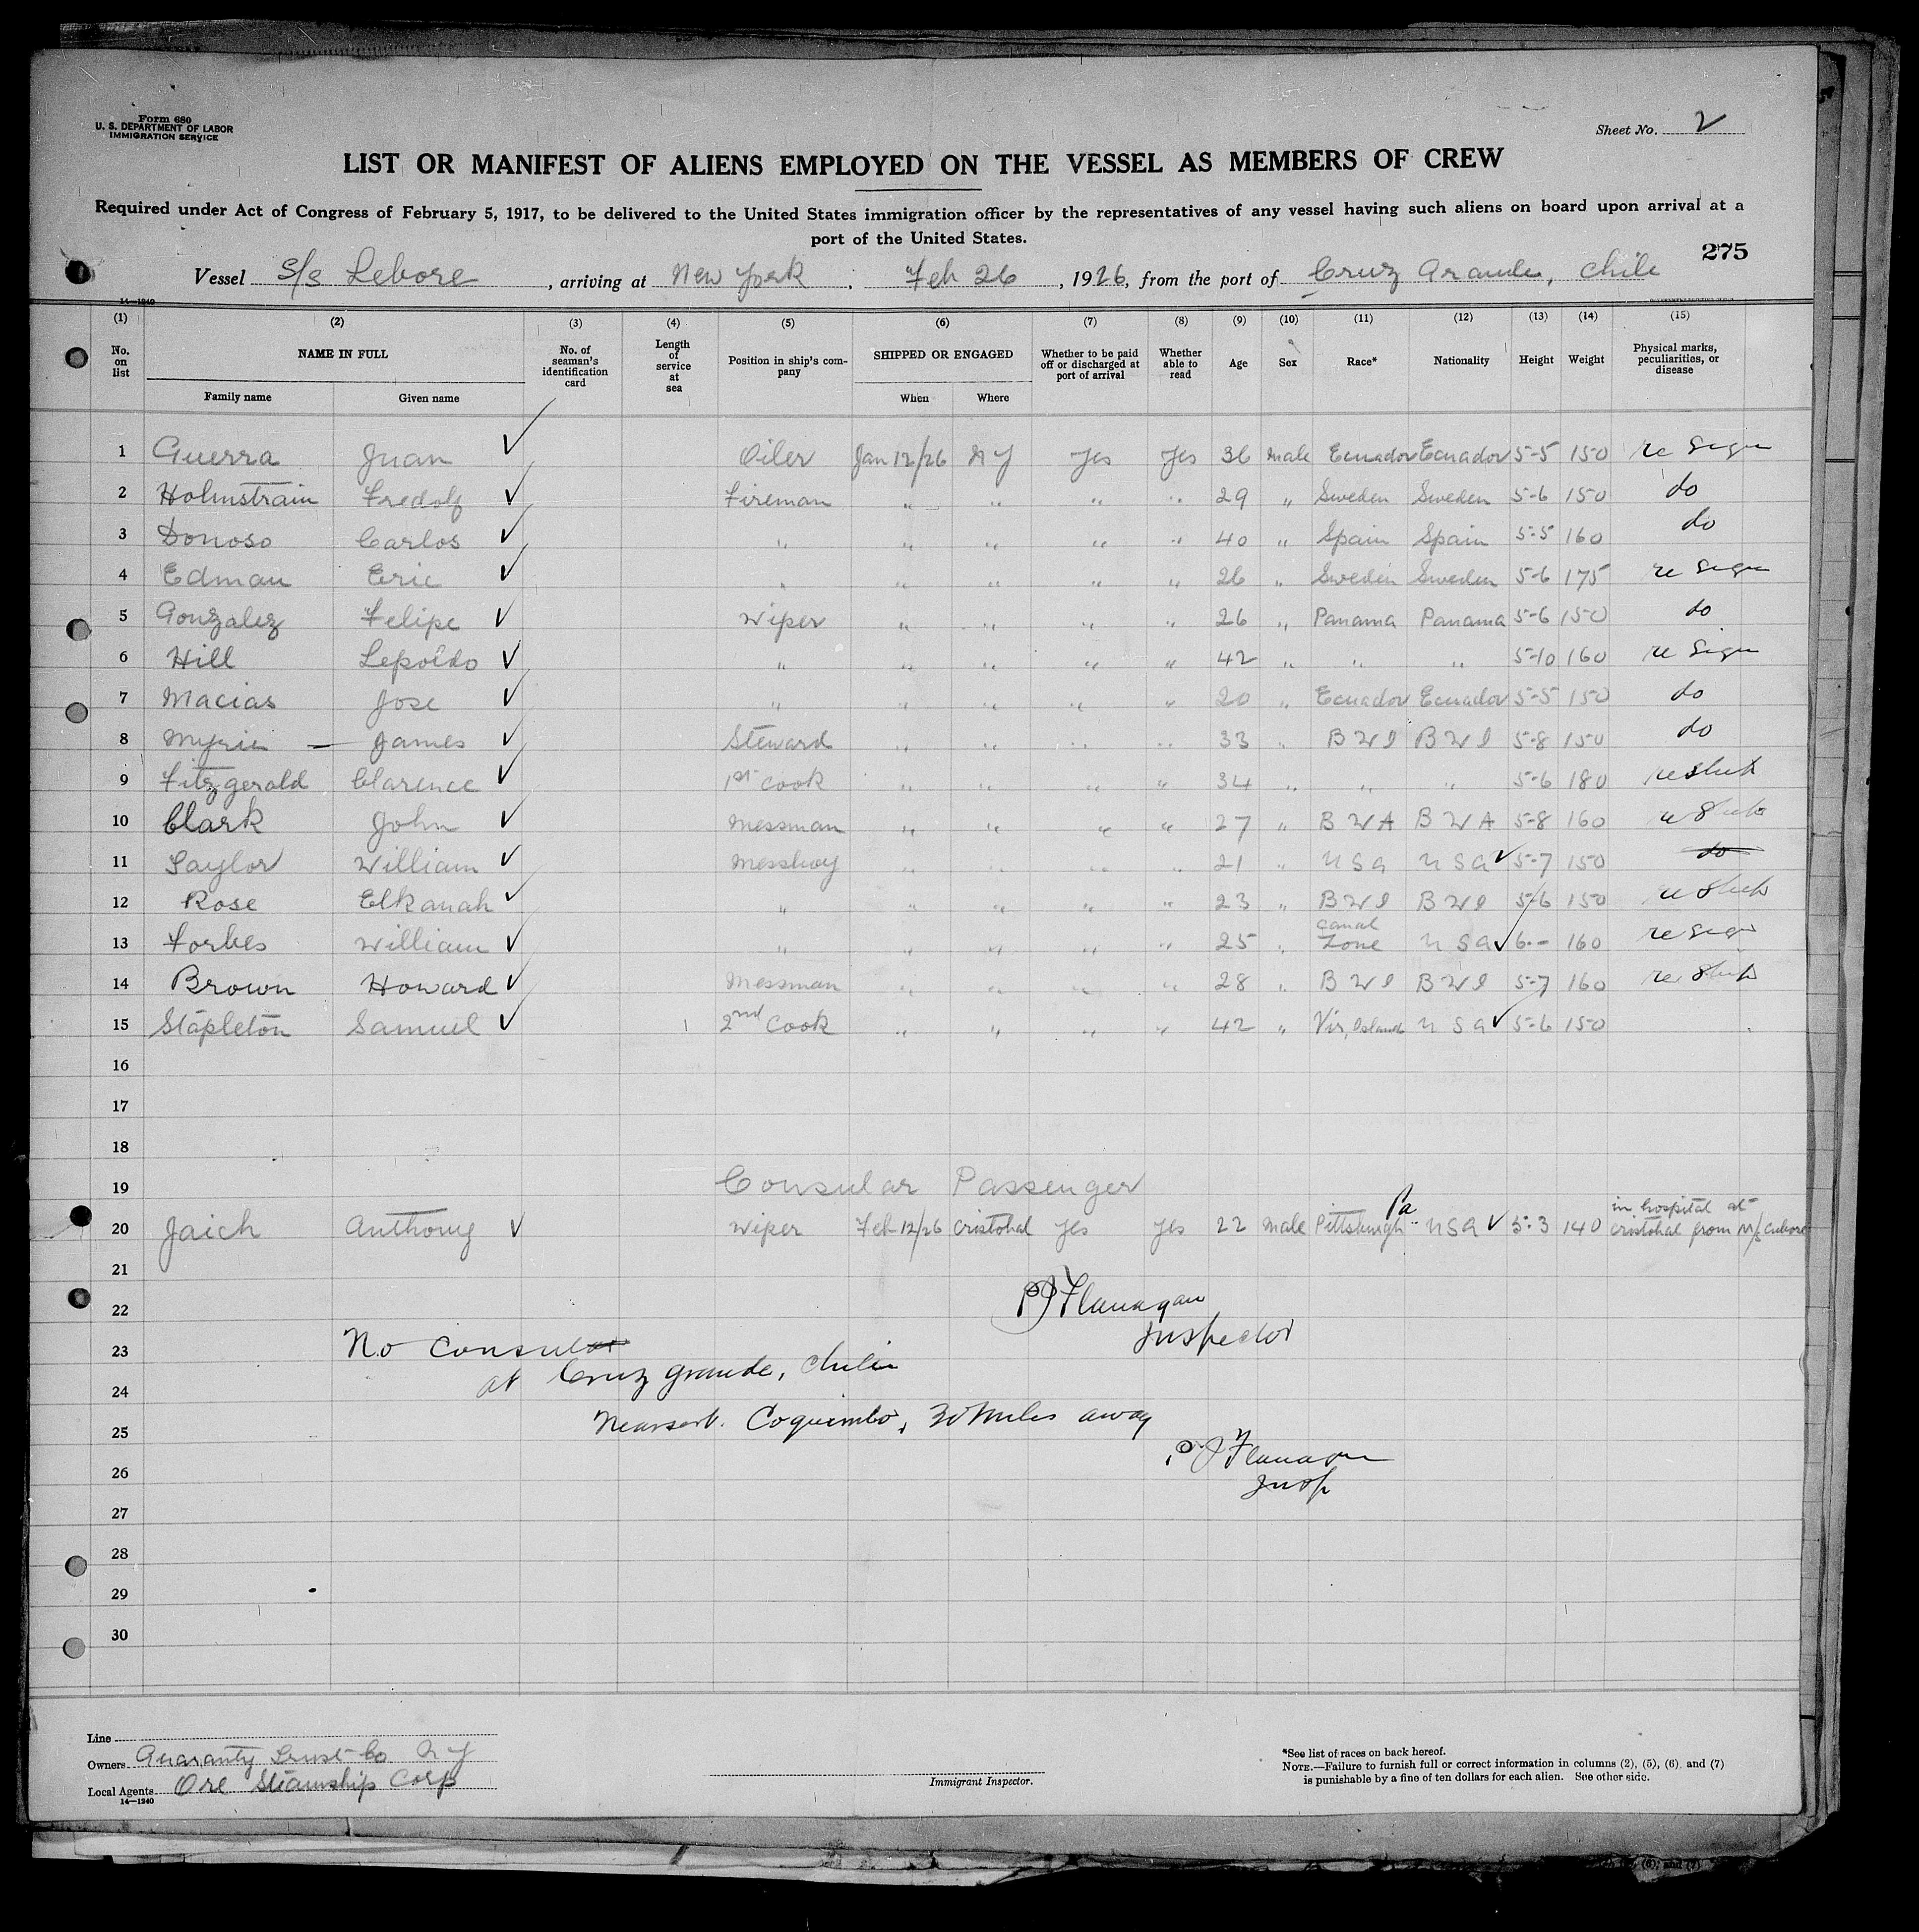 Form 680
U. S. DEPARTMENT OF LABOR
IMMIGRATION SERVICE
Sheet No. 2
LIST OR MANIFEST OF ALIENS EMPLOYED ON THE VESSEL AS MEMBERS OF CREW
Required under Act of Congress of February 5, 1917, to be delivered to the United States immigration officer by the representatives of any vessel having such aliens on board upon arrival at a
port of the United States.
275
Vessel S/S Lebore, arriving at New York, Feb 26, 1926, from the port of Cruz Grande, Chile
14—1240
(1) (2) (3) (4) (5) (6) (7) (8) (9) (10) (11) (12) (13) (14) (15)
No. on list NAME IN FULL No. of seaman's identification card Length of service at sea Position in ship's company SHIPPED OR ENGAGED Whether to be paid off or discharged at port of arrival Whether able to read Age Sex Race* Nationality Height Weight Physical marks, peculiarities, or disease
Family name Given name When Where
1 Guerra Juan ✓ Oiler Jan 12/26 N Y Yes Yes 36 Male Ecuador Ecuador 5-5 150 re Sign
2 Holmstrain Fredolf ✓ Fireman " " " " 29 " Sweden Sweden 5-6 150 do
3 Donoso Carlos ✓ " " " " " 40 " Spain Spain 5-5 160 do
4 Edman Eric ✓ " " " " " 26 " Sweden Sweden 5-6 175 re Sign
5 Gonzalez Felipe ✓ Wiper " " " " 26 " Panama Panama 5-6 150 do
6 Hill Lepoldo ✓ " " " " " 42 " " " 5-10 160 re Sign
7 Macias Jose ✓ " " " " " 20 " Ecuador Ecuador 5-5 150 do
8 Myrie — James ✓ Steward " " " " 33 " B W I B W I 5-8 150 do
9 Fitzgerald Clarence ✓ 1st Cook " " " " 34 " " " 5-6 180 reship
10 Clark John ✓ Messman " " " " 27 " B W A B W A 5-8 160 re Ship
11 Taylor William ✓ Messboy " " " " 21 " U S a U S a ✓ 5-7 150 do
12 Rose Elkanah ✓ " " " " " 23 " B W I B W I 5-6 150 re Ship
13 Forbes William ✓ " " " " " 25 " Canal Zone U S a ✓ 6-- 160 re Sign
14 Brown Howard ✓ Messman " " " " 28 " B W I B W I 5-7 160 re Ship
15 Stapleton Samuel ✓ 2nd Cook " " " " 42 " Vir, Island U S a ✓ 5-6 150
16
17
18
19 Consular Passenger
20 Jaich Anthony ✓ Wiper Feb 12/26 Cristobal Yes Yes 22 Male Pittsburgh Pa U S a ✓ 5-3 140 in hospital at cristobal from M/S Cubore
21
22 P J Flanagan
Inspector
23 No Consulat
24 at Cruz Grande, Chile
25 Nearest. Coquimbo, 30 Miles away
26 P J Flanagan
Insp
27
28
29
30
Line
Owners Guaranty Trust Co N Y
Local Agents Ore Steamship Corp
14—1240
Immigrant Inspector.
*See list of races on back hereof.
NOTE.—Failure to furnish full or correct information in columns (2), (5), (6), and (7)
is punishable by a fine of ten dollars for each alien. See other side.
(6), and (7)